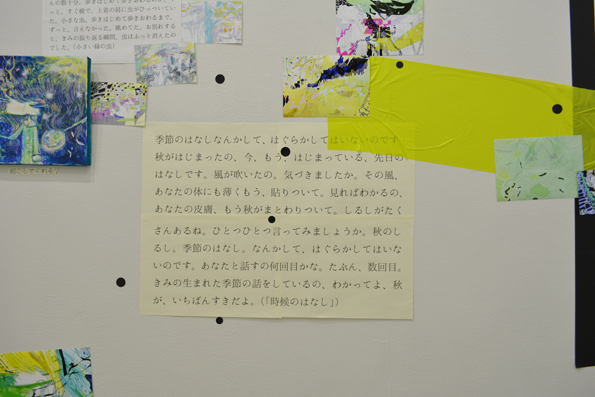 と。すこ前で、上着の肩に虫がひっついてい
た。小さな虫。歩きはじめて歩きおわるまで、
ずっと、言えなかった。眺めてた。お別れする
と、きみの振り返る瞬間、虫はふっと消えたの
でした。（小さい緑の虫）
季節のはなしなんかして、はぐらかしてはいないのです。
秋がはじまったの、今、もう、はじまっている、先日の
はなしです。風が吹いたの。気づきましたか。その風、
あなたの体にも薄くもう、貼りついて。見ればわかるの、
あなたの皮膚、もう秋がまとわりついて。しるしがたく
さんあるね。ひとつひとつ言ってみましょうか。秋のし
るし。季節のはなし。なんかして、はぐらかしてはいな
いのです。あなたと話すの何回目かな。たぶん、数回目。
きみの生まれた季節の話をしているの、わかってよ、秋
が、いちばんすきだよ。（「時候のはなし」）